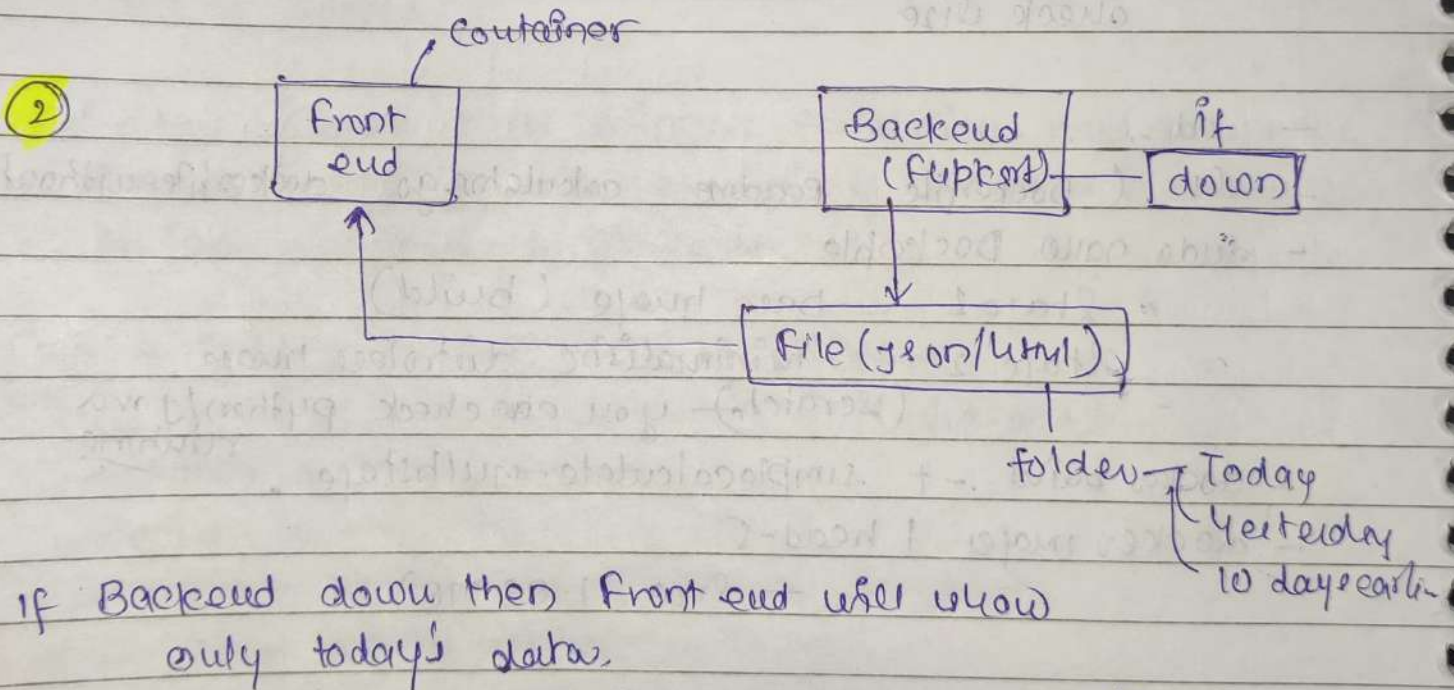 container
②
Front
end
Backend
(support)
if
down
File (json/html)
folder
Today
Yesterday
10 days earli-
If Backend down then Front end will show
only today's data.